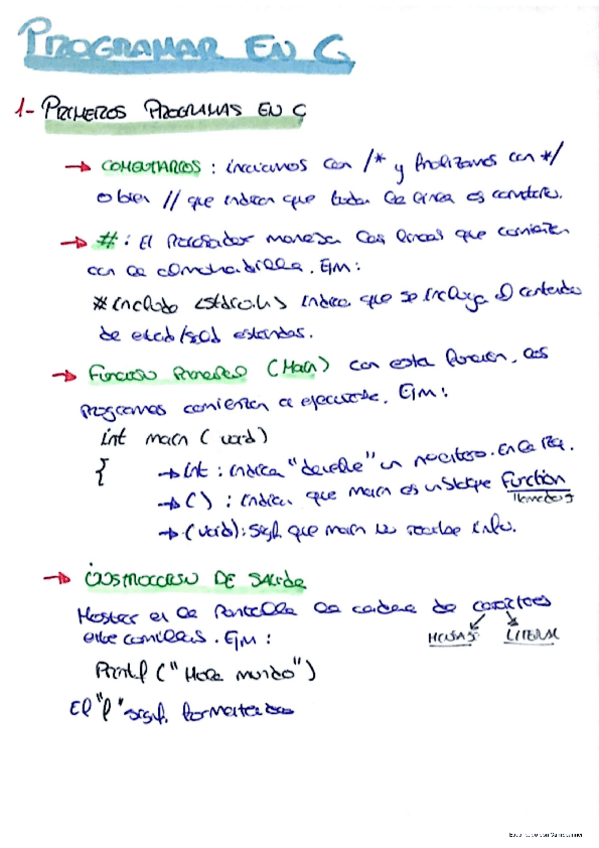 PROGRAMAR EN C
1- PRIMEROS PROGRAMAS EN C
→ COMENTARIOS : iniciamos con /* y finalizamos con */
o bien // que indican que toda la línea es comentario.
→ # : El Procesador maneja las líneas que comienzan
con la almohadilla. Ejm:
#include <stdio.h> indica que se incluya el contenido
de estándar.
→ Función Principal (Main) con esta función, los
programas comienzan a ejecutarse. Ejm:
int main (void)
{ → int : indica "devuelve" un nº entero.
→ ( ) : indican que main es un bloque Function
llamado
→ (void): sigf. que main no recibe info.
→ INSTRUCCIÓN DE SALIDA
Mostrar en la Pantalla la cadena de caracteres
entre comillas. Ejm : MENSAJE LITERAL
Printf ("Hola mundo")
El "f" sigf. formateado